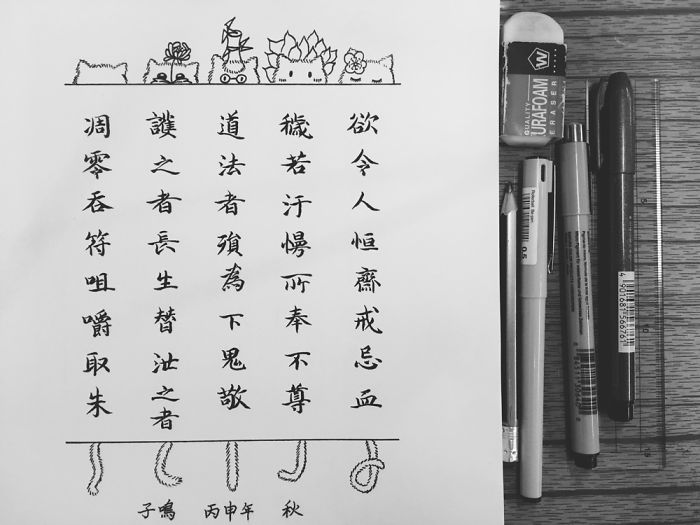 欲令人恒齋戒忌血
穢若汙慢所奉不尊
道法者殞為下鬼敬
護之者長生替泄之者
凋零吞符咀嚼取朱
秋
丙申年
子鳴
W
QUALITY
URAFOAM
ERASER
0.5